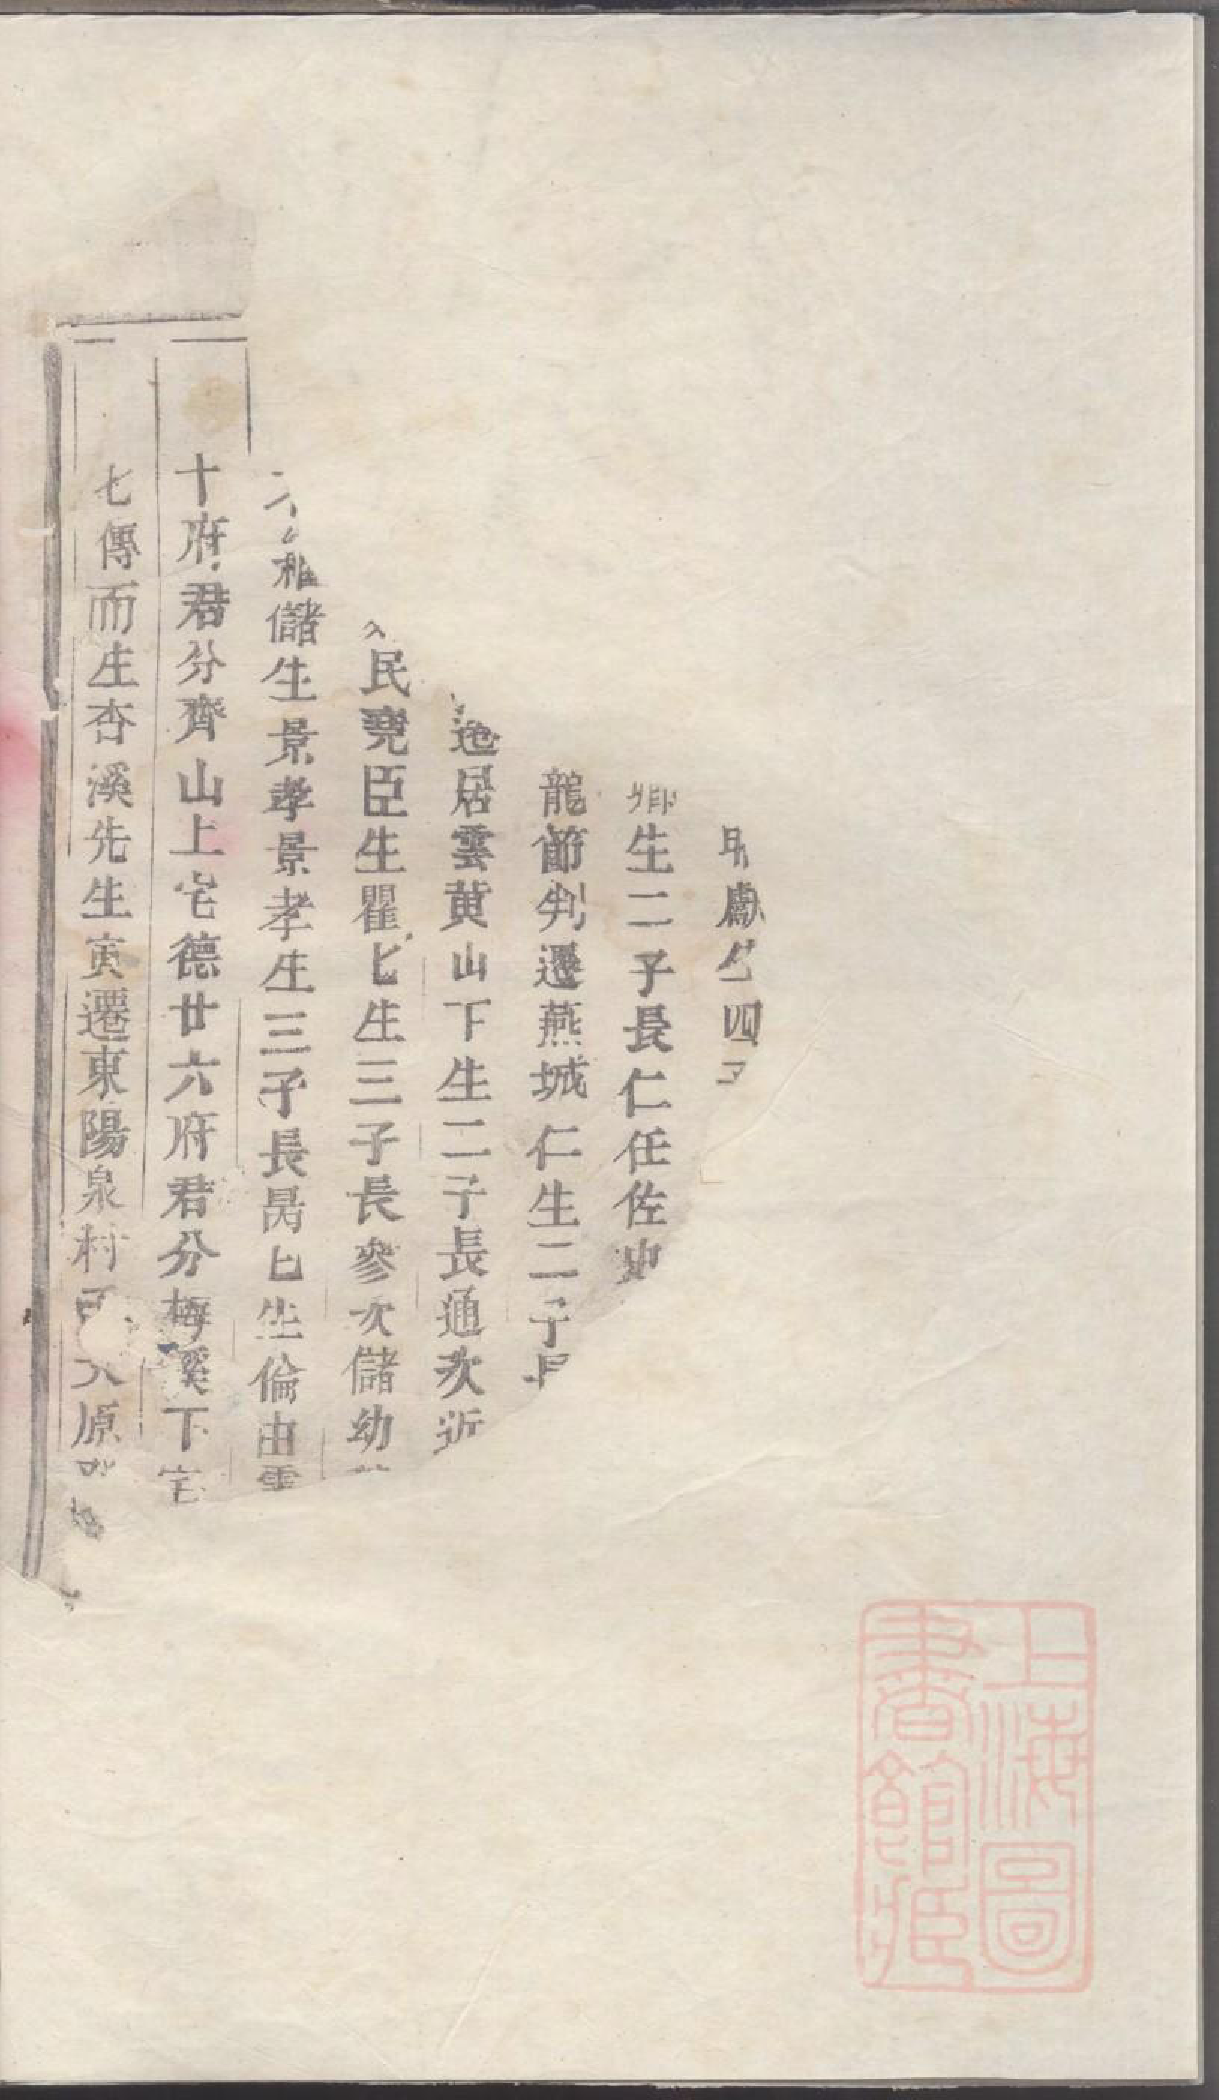 獻生四
生二子長仁任佐
龍節判遷燕城仁生二子
居雲黄山下生二子長通次近
民堯臣生瞿匕生三子長參次儲幼
儲生景孝景孝生三子長昺匕生倫由
十府君分齊山上宅德廿六府君分梅溪下宅
七傳而生杏溪先生寅遷東陽泉村原
上海圖書館藏